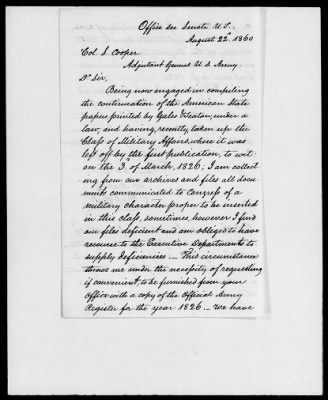 Office Sec Senate U.S.
August 22d 1860
Col. S. Cooper
Adjutant General U.S. Army.
Dr Sir,
Being now engaged in compiling
the continuation of the American State
papers, printed by Gales & Seaton, under a
law, and having, recently, taken up the
Class of Military Affairs, where it was
left off by the first publication, to wit
on the 3d of March, 1826, I am collect
ing from our archives and files all docu
ment communicated to Congress of a
military character proper to be inserted
in this class, sometimes, however I find
our files deficient and am obliged to have
recourse to the Executive Departments to
supply deficiencies. — This circumstance
throws me under the necessity of requesting
if convenient, to be furnished from your
Office with a copy of the Official Army
Register for the year 1826. — We have